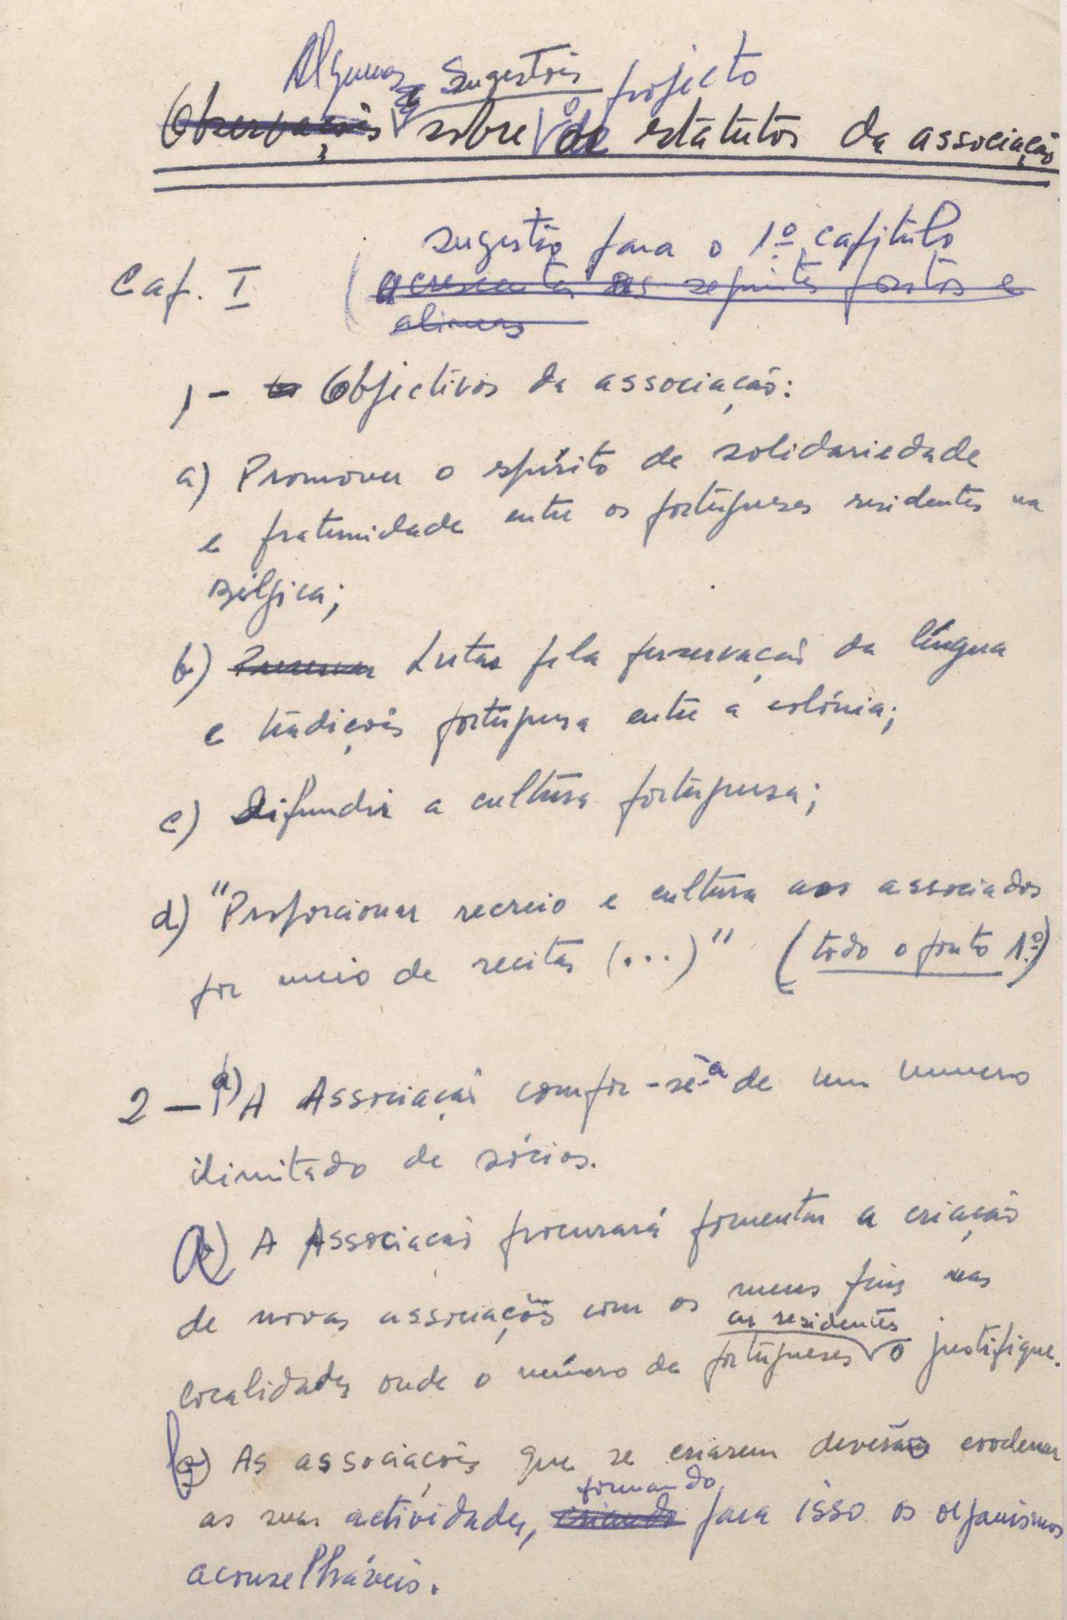 Algumas Sugestões projecto
Observações sobre o de estatutos da associação
sugestão para o 1º capítulo
Cap. I (acrescentar os seguintes pontos e
alineas
1 - Objectivos da associação:
a) Promover o espírito de solidariedade
e fraternidade entre os portugueses residentes na
Bélgica;
b) Promover Lutar pela preservação da língua
e tradições portuguesa entre a colónia;
c) Difundir a cultura portuguesa;
d) "Proporcionar recreio e cultura aos associados
por meio de recitas (...)" (todo o ponto 1º)
2 - a) A Associação compor-se-á de um numero
ilimitado de sócios.
a) A Associação procurará fomentar a criação
de novas associações com os mesmos fins nas
aí residentes
localidades onde o número de portugueses o justifique.
b) As associações que se criarem deverão coordenar
formando
as suas actividades, criando para isso os organismos
aconselháveis.